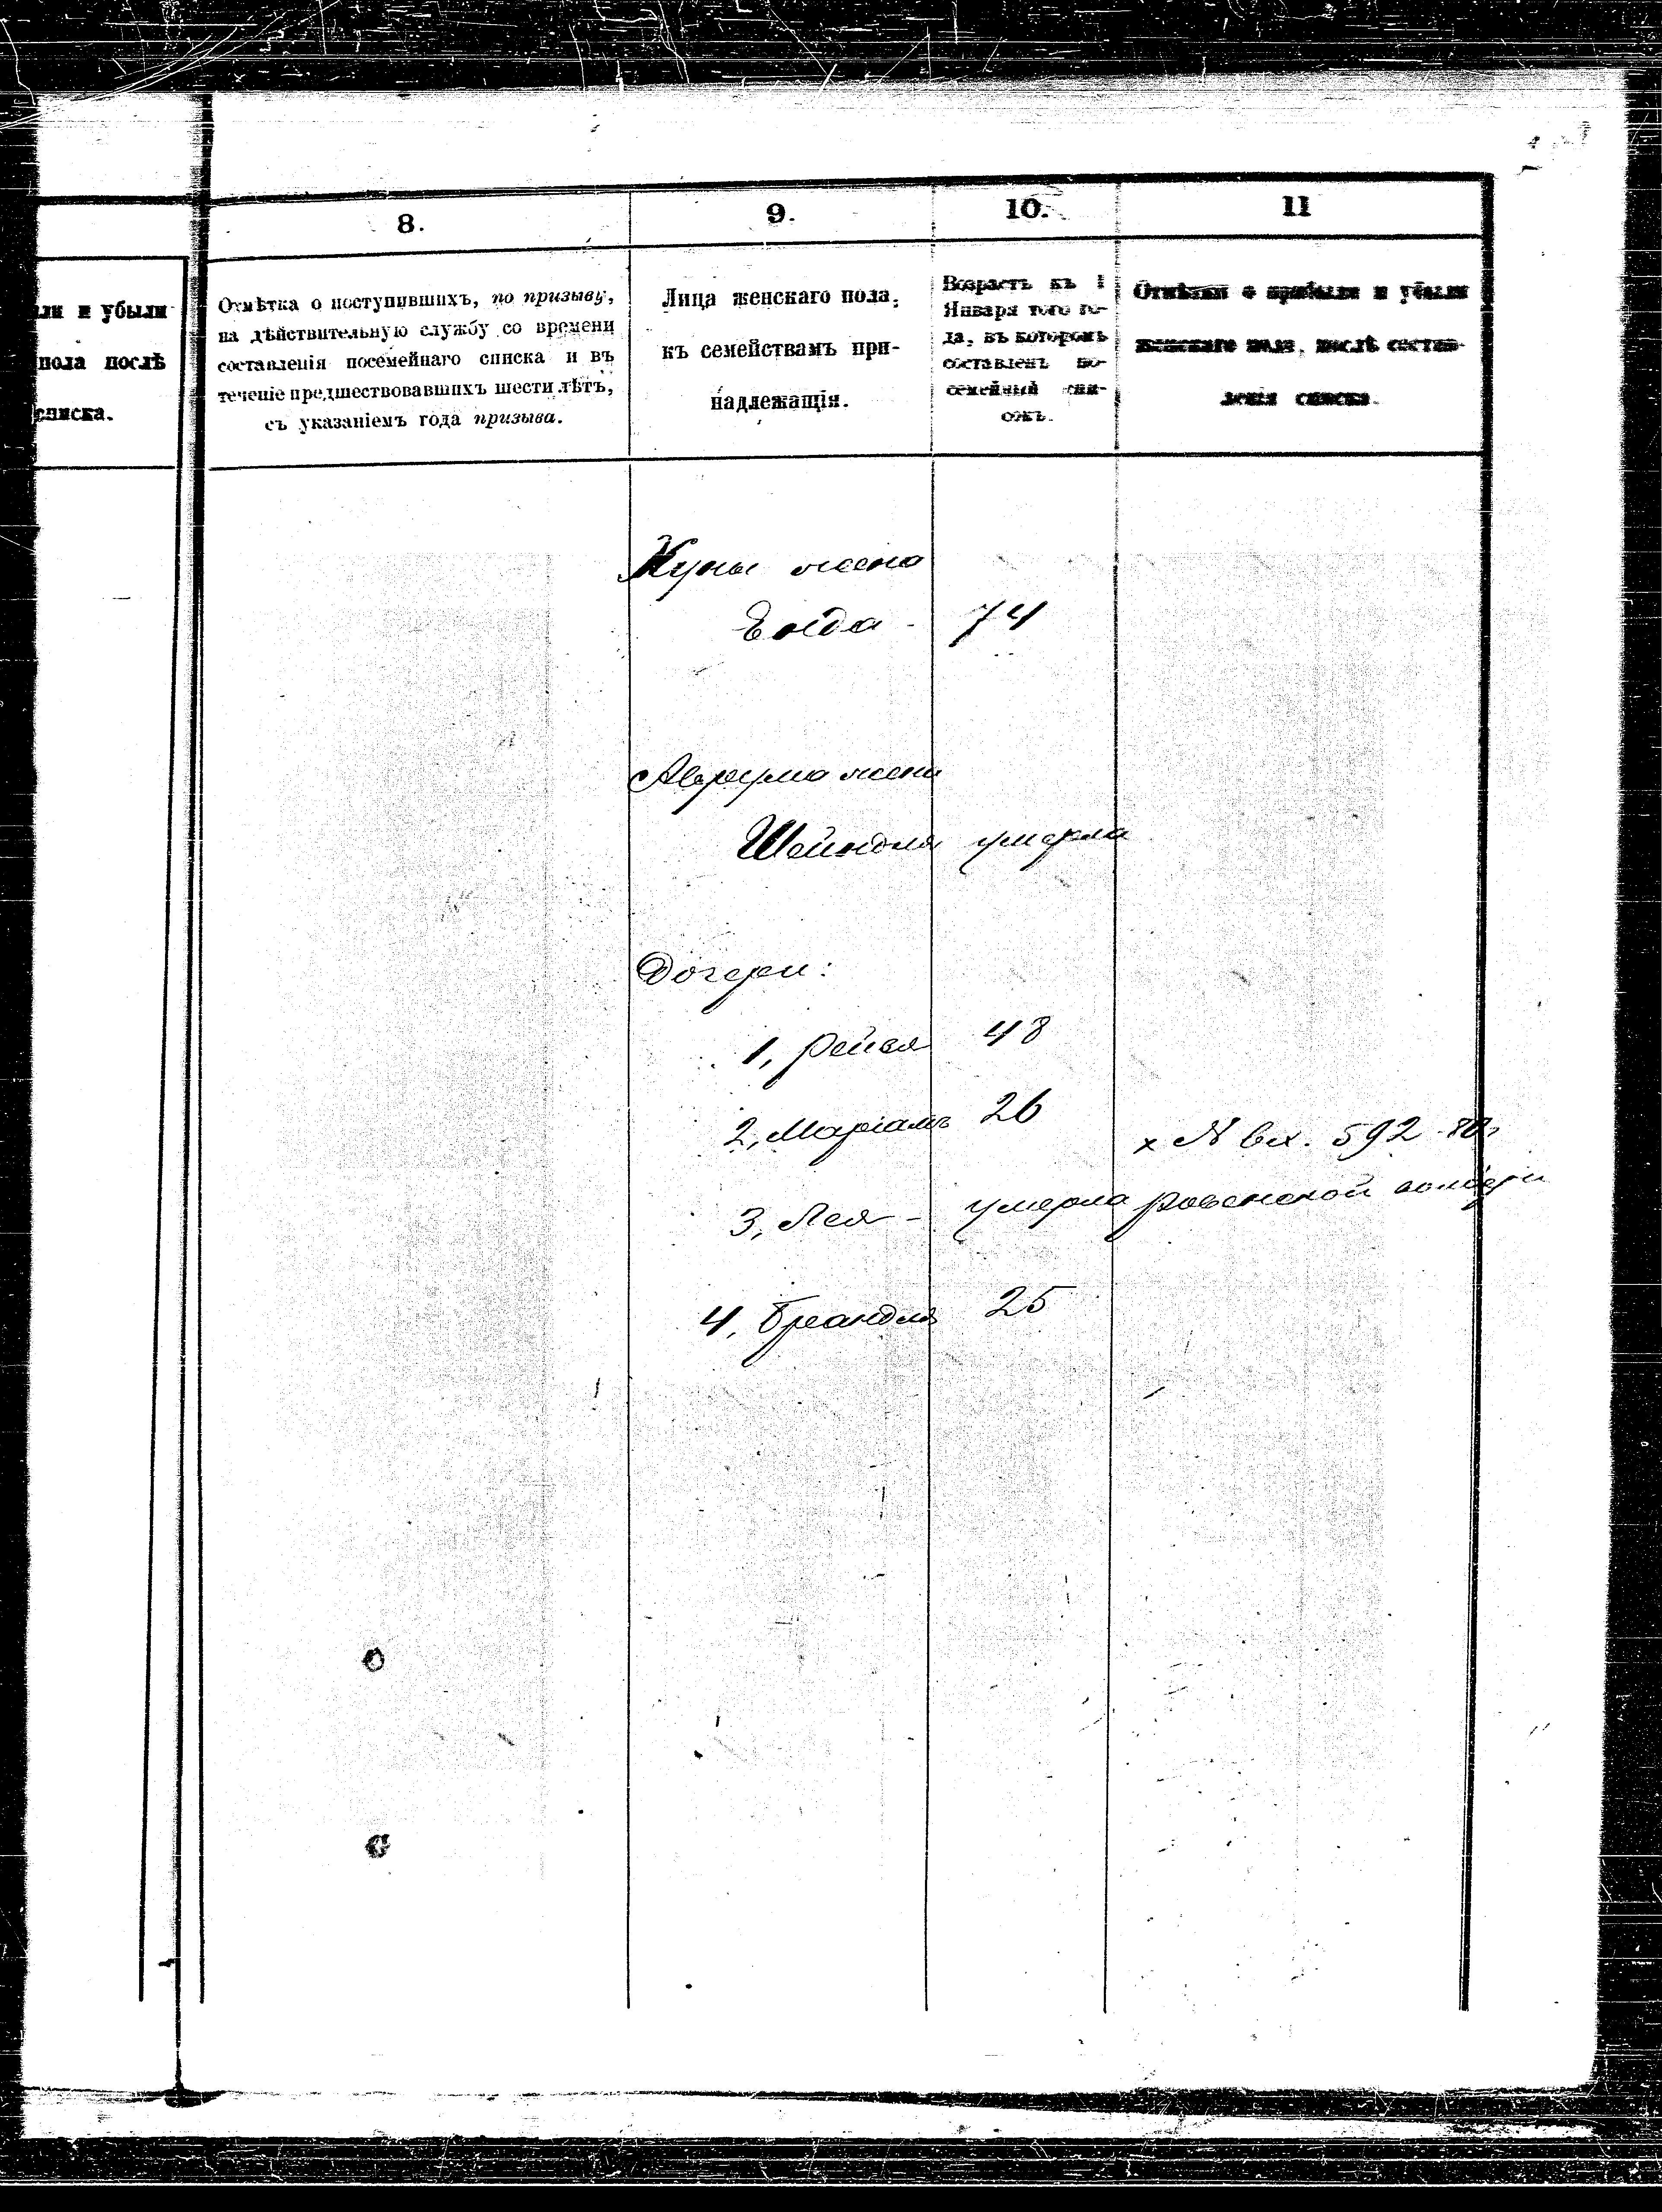 8.
9.
10.
11
ли и убыли
пола послѣ
списка.
Отмѣтка о поступившихъ, по призыву,
на дѣйствительную службу со времени
составленія посемейнаго списка и въ
теченіе предшествовавшихъ шести лѣтъ,
съ указаніемъ года призыва.
Лица женскаго пола,
къ семействамъ при-
надлежащія.
Возрастъ къ 1
Января того го-
да, въ которомъ
составленъ по-
семейный спи-
сокъ.
Отмѣтки о прибыли и убыли
женскаго пола, послѣ состав-
ленія списка.
жена
74
жена
Шейндля умерла
Дочери:
1, Рейзя 48
2, Маріамъ 26
х № вх. 592
3, Лея - умерла
4, Бреандля 25